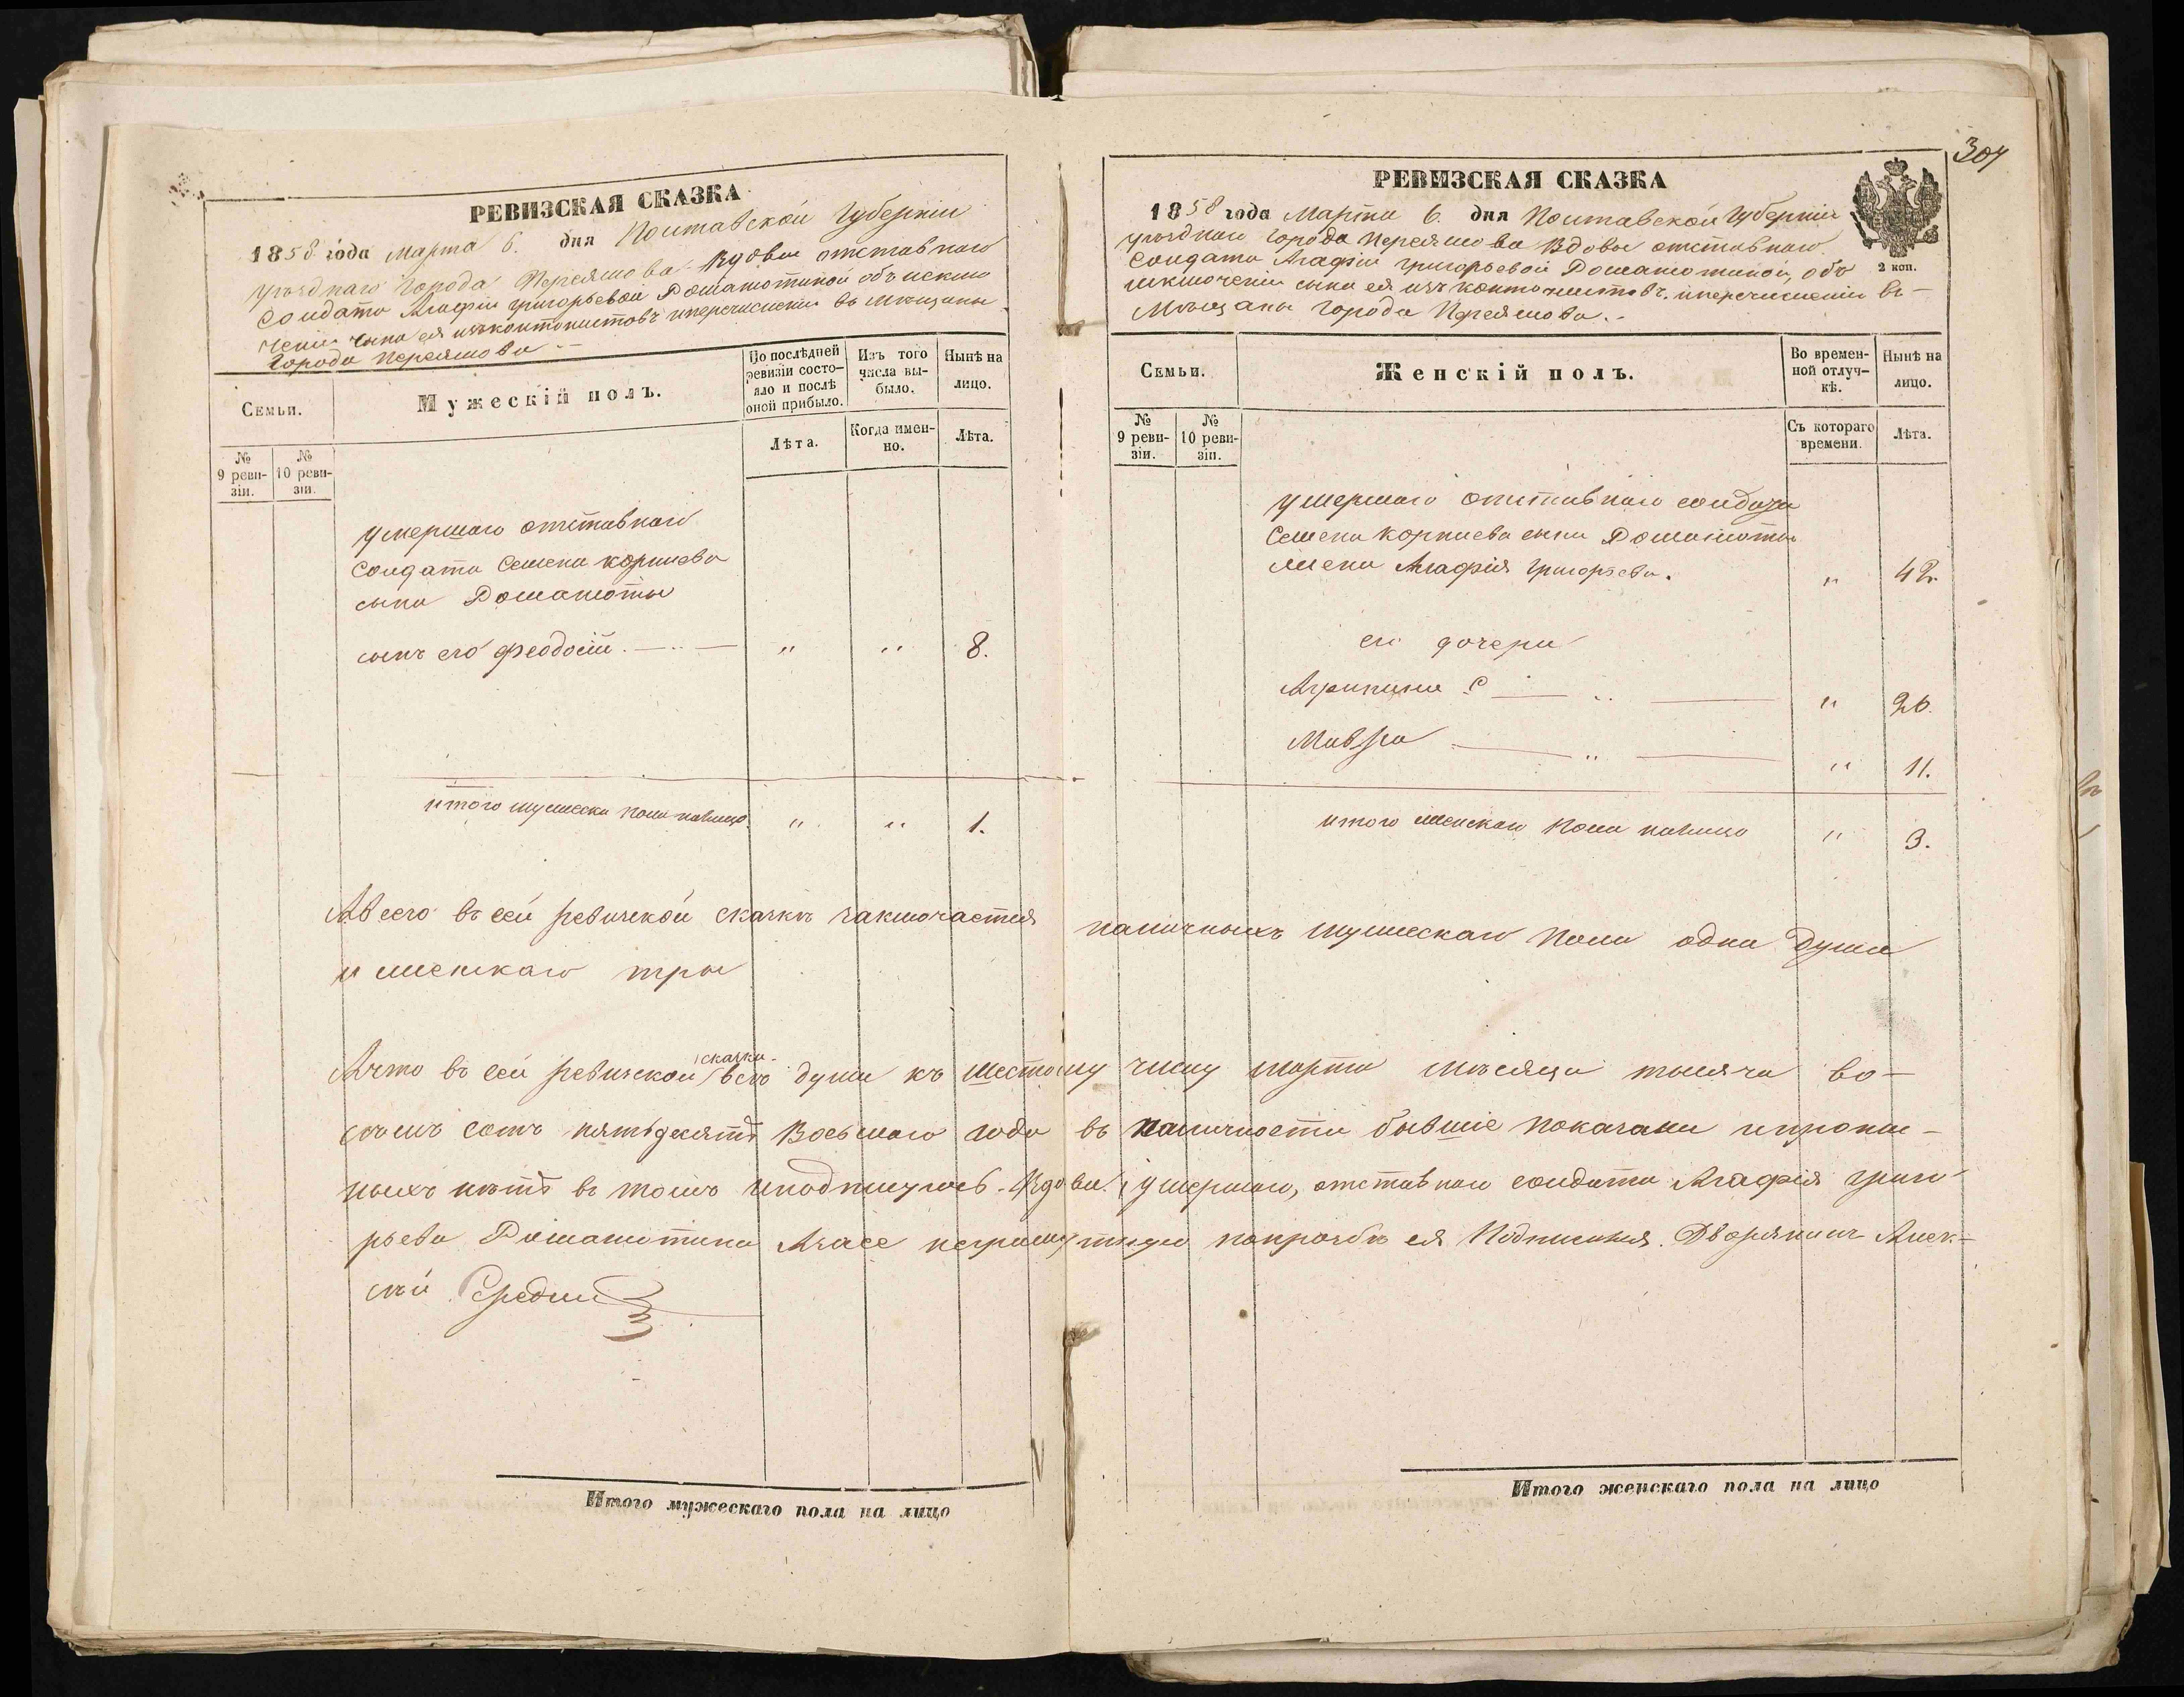 РЕВИЗСКАЯ СКАЗКА
1858 года марта 6. дня Полтавской Губерніи
уѣзднаго города Переяслова Вдовы отставнаго
солдата Агафіи Григорьевой Ромашютиной объ исклю
ченіи сына ея изъ контонистовъ и перечисленіи въ мещаны
города Переяслова
Семьи.
Мужескій полъ.
По послѣдней ревизіи состояло и послѣ оной прибыло.
Изъ того числа выбыло.
Нынѣ на лицо.
№ 9 ревизіи.
№ 10 ревизіи.
Лѣта.
Когда именно.
Лѣта.
умершаго отставнаго
Солдата Семена Корніева
сына
сынъ его Феодосій. " " 8.
итого мужеска пола налицо. " " 1.
Итого мужескаго пола на лицо
304
РЕВИЗСКАЯ СКАЗКА
2 коп.
1858 года Марта 6. дня Полтавской Губерніи
уѣзднаго города Переяслова Вдовы отставнаго
Солдата Агафіи Григорьевой Ромашютиной, объ
исключеніи сына ея изъ контонистовъ и перечисленіи въ
Мѣщаны города Переяслова.
Семьи.
Женскій полъ.
Во временной отлучкѣ.
Нынѣ на лицо.
№ 9 ревизіи.
№ 10 ревизіи.
Съ котораго времени.
Лѣта.
умершаго отставнаго солдата
Семена Корніева сына
жена Агафія Григорьева. " 42.
его дочери
Агрипина " 26.
Мавра " 11.
итого женскаго пола налицо " 3.
А всего въ сей ревизской сказкѣ заключается наличныхъ мужескаго пола одна душа
и женскаго три
А что въ сей ревизской сказки всѣ души къ шестому числу марта мѣсяца тысяча во-
съмъ сотъ пятьдесятъ Восьмаго года въ наличности бывшіе показани и пропи-
ныхъ нѣтъ въ томъ и подпишуюсь. Вдова умершаго, отставнаго солдата Агафія Григо
рьева Ромашютина А засе неграмотную по прозбѣ ея Подписался. Дворянинъ Алек-
сѣй Середин
Итого женскаго пола на лицо